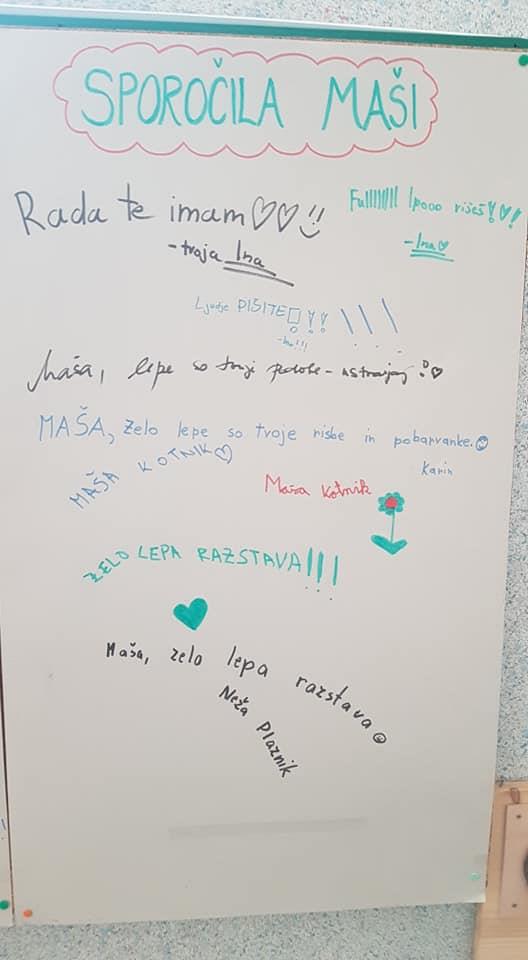 SPOROČILA MAŠI
Rada te imam♡♡!!
Fulllllllll lpooo rišeš!♡!
- tvoja Ina
- Ina♡
Ljudje PIŠITE !!! \ \ \
Maša, lepe so tvoji ♡
MAŠA, zelo lepe so tvoje risbe in pobarvanke.☺
Karin
MAŠA KOTNIK♡
Maša Kotnik
ZELO LEPA RAZSTAVA!!!
Maša, zelo lepa razstava☺
Neža Plaznik